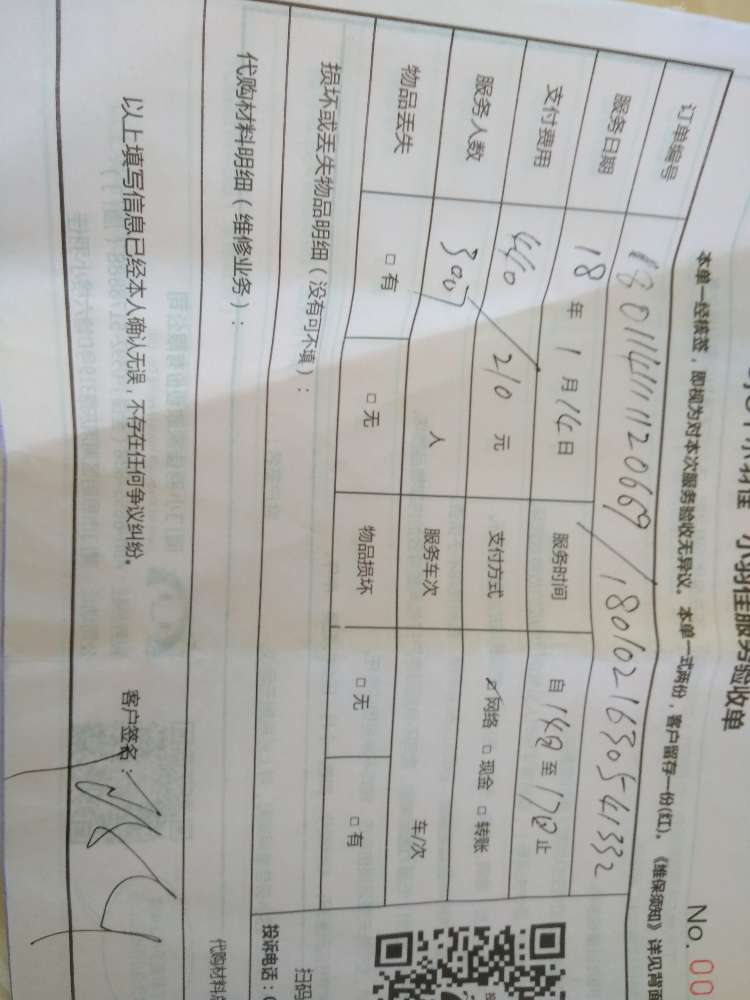 小羽佳服务验收单
No. 00
本单一经核签，即视为对本次服务验收无异议。本单一式两份，客户留存一份(红)。《维保须知》详见背面
订单编号 180114111120669/180102163054 1332
服务日期 18年1月14日 服务时间 自14日至17日止
支付费用 440/210元 支付方式 ☑网络 □现金 □转账
服务人数 人 服务车次 车/次
物品丢失 □有 □无 物品损坏 □无 □有
损坏或丢失物品明细（没有可不填）：
代购材料明细（维修业务）：
以上填写信息已经本人确认无误，不存在任何争议纠纷。 客户签名：
扫码
投诉电话：
代购材料